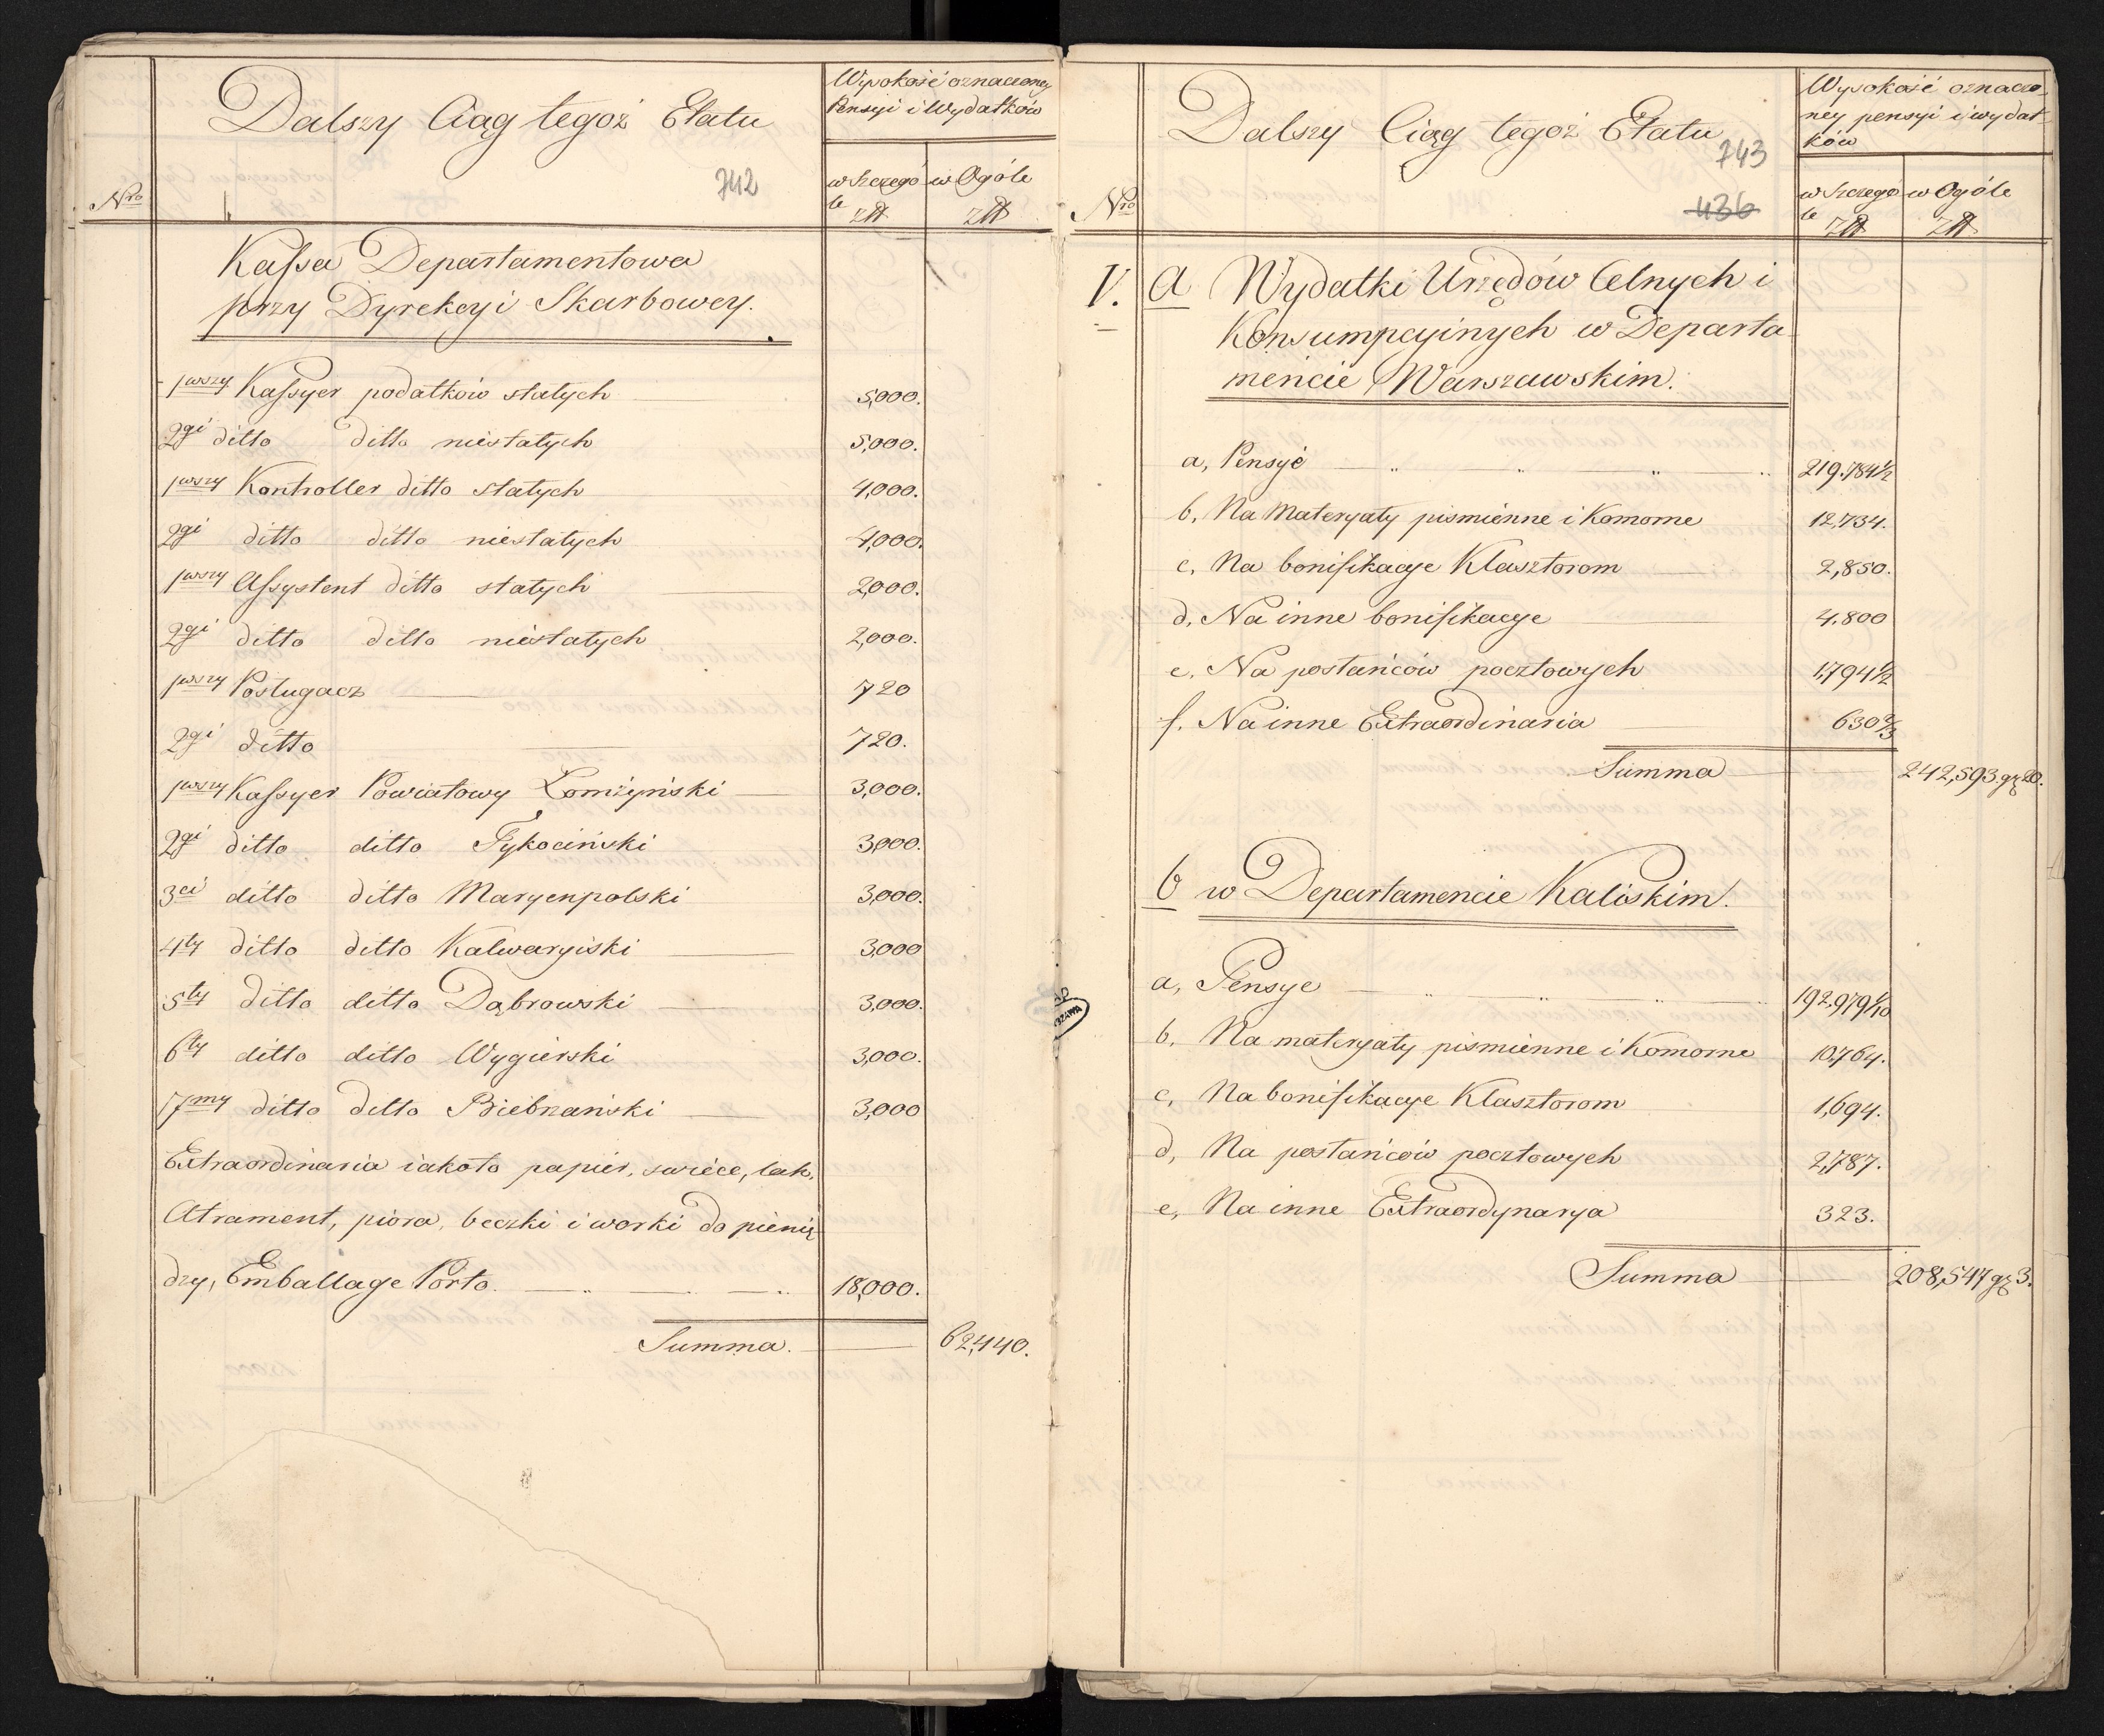 Dalszy Ciąg tegoż Etatu
Wysokość oznaczoney
Pensyi i Wydatków
742
Nro
w Szczegó
le
złł
w Ogóle
złł
Kassa Departamentowa
przy Dyrekcyi Skarbowey.
1wszy Kassyer podatków stałych 5,000.
2gi ditto ditto niestałych 5,000.
1wszy Kontroller ditto stałych 4,000.
2gi ditto ditto niestałych 4,000.
1wszy Assystent ditto stałych 2,000.
2gi ditto ditto niestałych 2,000.
1wszy Posługacz 720
2gi ditto 720.
1wszy Kassyer Powiatowy Łomżyński 3,000.
2gi ditto ditto Tykociński 3,000.
3ci ditto ditto Maryenpolski 3,000.
4ty ditto ditto Kalwaryiski 3,000
5ty ditto ditto Dąbrowski 3,000.
6ty ditto ditto Wygierski 3,000.
7my ditto ditto Biebrzański 3,000
Extraordinaria iakoto papier, świece, lak,
Atrament, pióra, beczki i worki do pienię
dzy, Emballage Porto. 18,000.
Summa. 62,440.
Dalszy Ciąg tegoż Etatu
743
436
Nro
Wysokość oznaczo-
ney pensyi i wydat-
ków
w Szczegó
le
złł
w Ogóle
złł
V. a Wydatki Urzędów Celnych i
Konsumpcyinych w Departa-
mencie Warszawskim.
a, Pensye 219.784 1/2
b, Na Materyały piśmienne i Komorne 12,734.
c, Na bonifikacye Klasztorom 2,850.
d, Na inne bonifikacye 4.800
e, Na posłańców pocztowych 1,794 1/2
f. Na inne Extraordinaria 630 2/3
Summa 242,593. gr 20.
b w Departamencie Kaliskim.
a, Pensye 192.979 1/10
b, Na materyały piśmienne i Komorne 10,764.
c, Na bonifikacye Klasztorom 1,694.
d, Na posłańców pocztowych 2,787.
e, Na inne Extraordynarya 323.
Summa 208,547 gr 3.